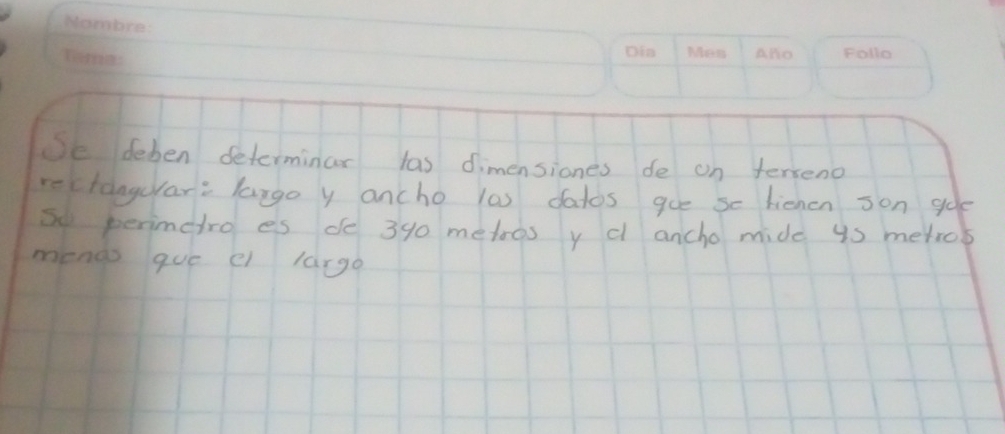 Nombre:
Tema:
Día Mes Año Folio
Se deben determinar las dimensiones de un terreno
rectangular: largo y ancho las datos que se tienen son que
su perimetro es de 340 metros y el ancho mide 45 metros
menos que el largo